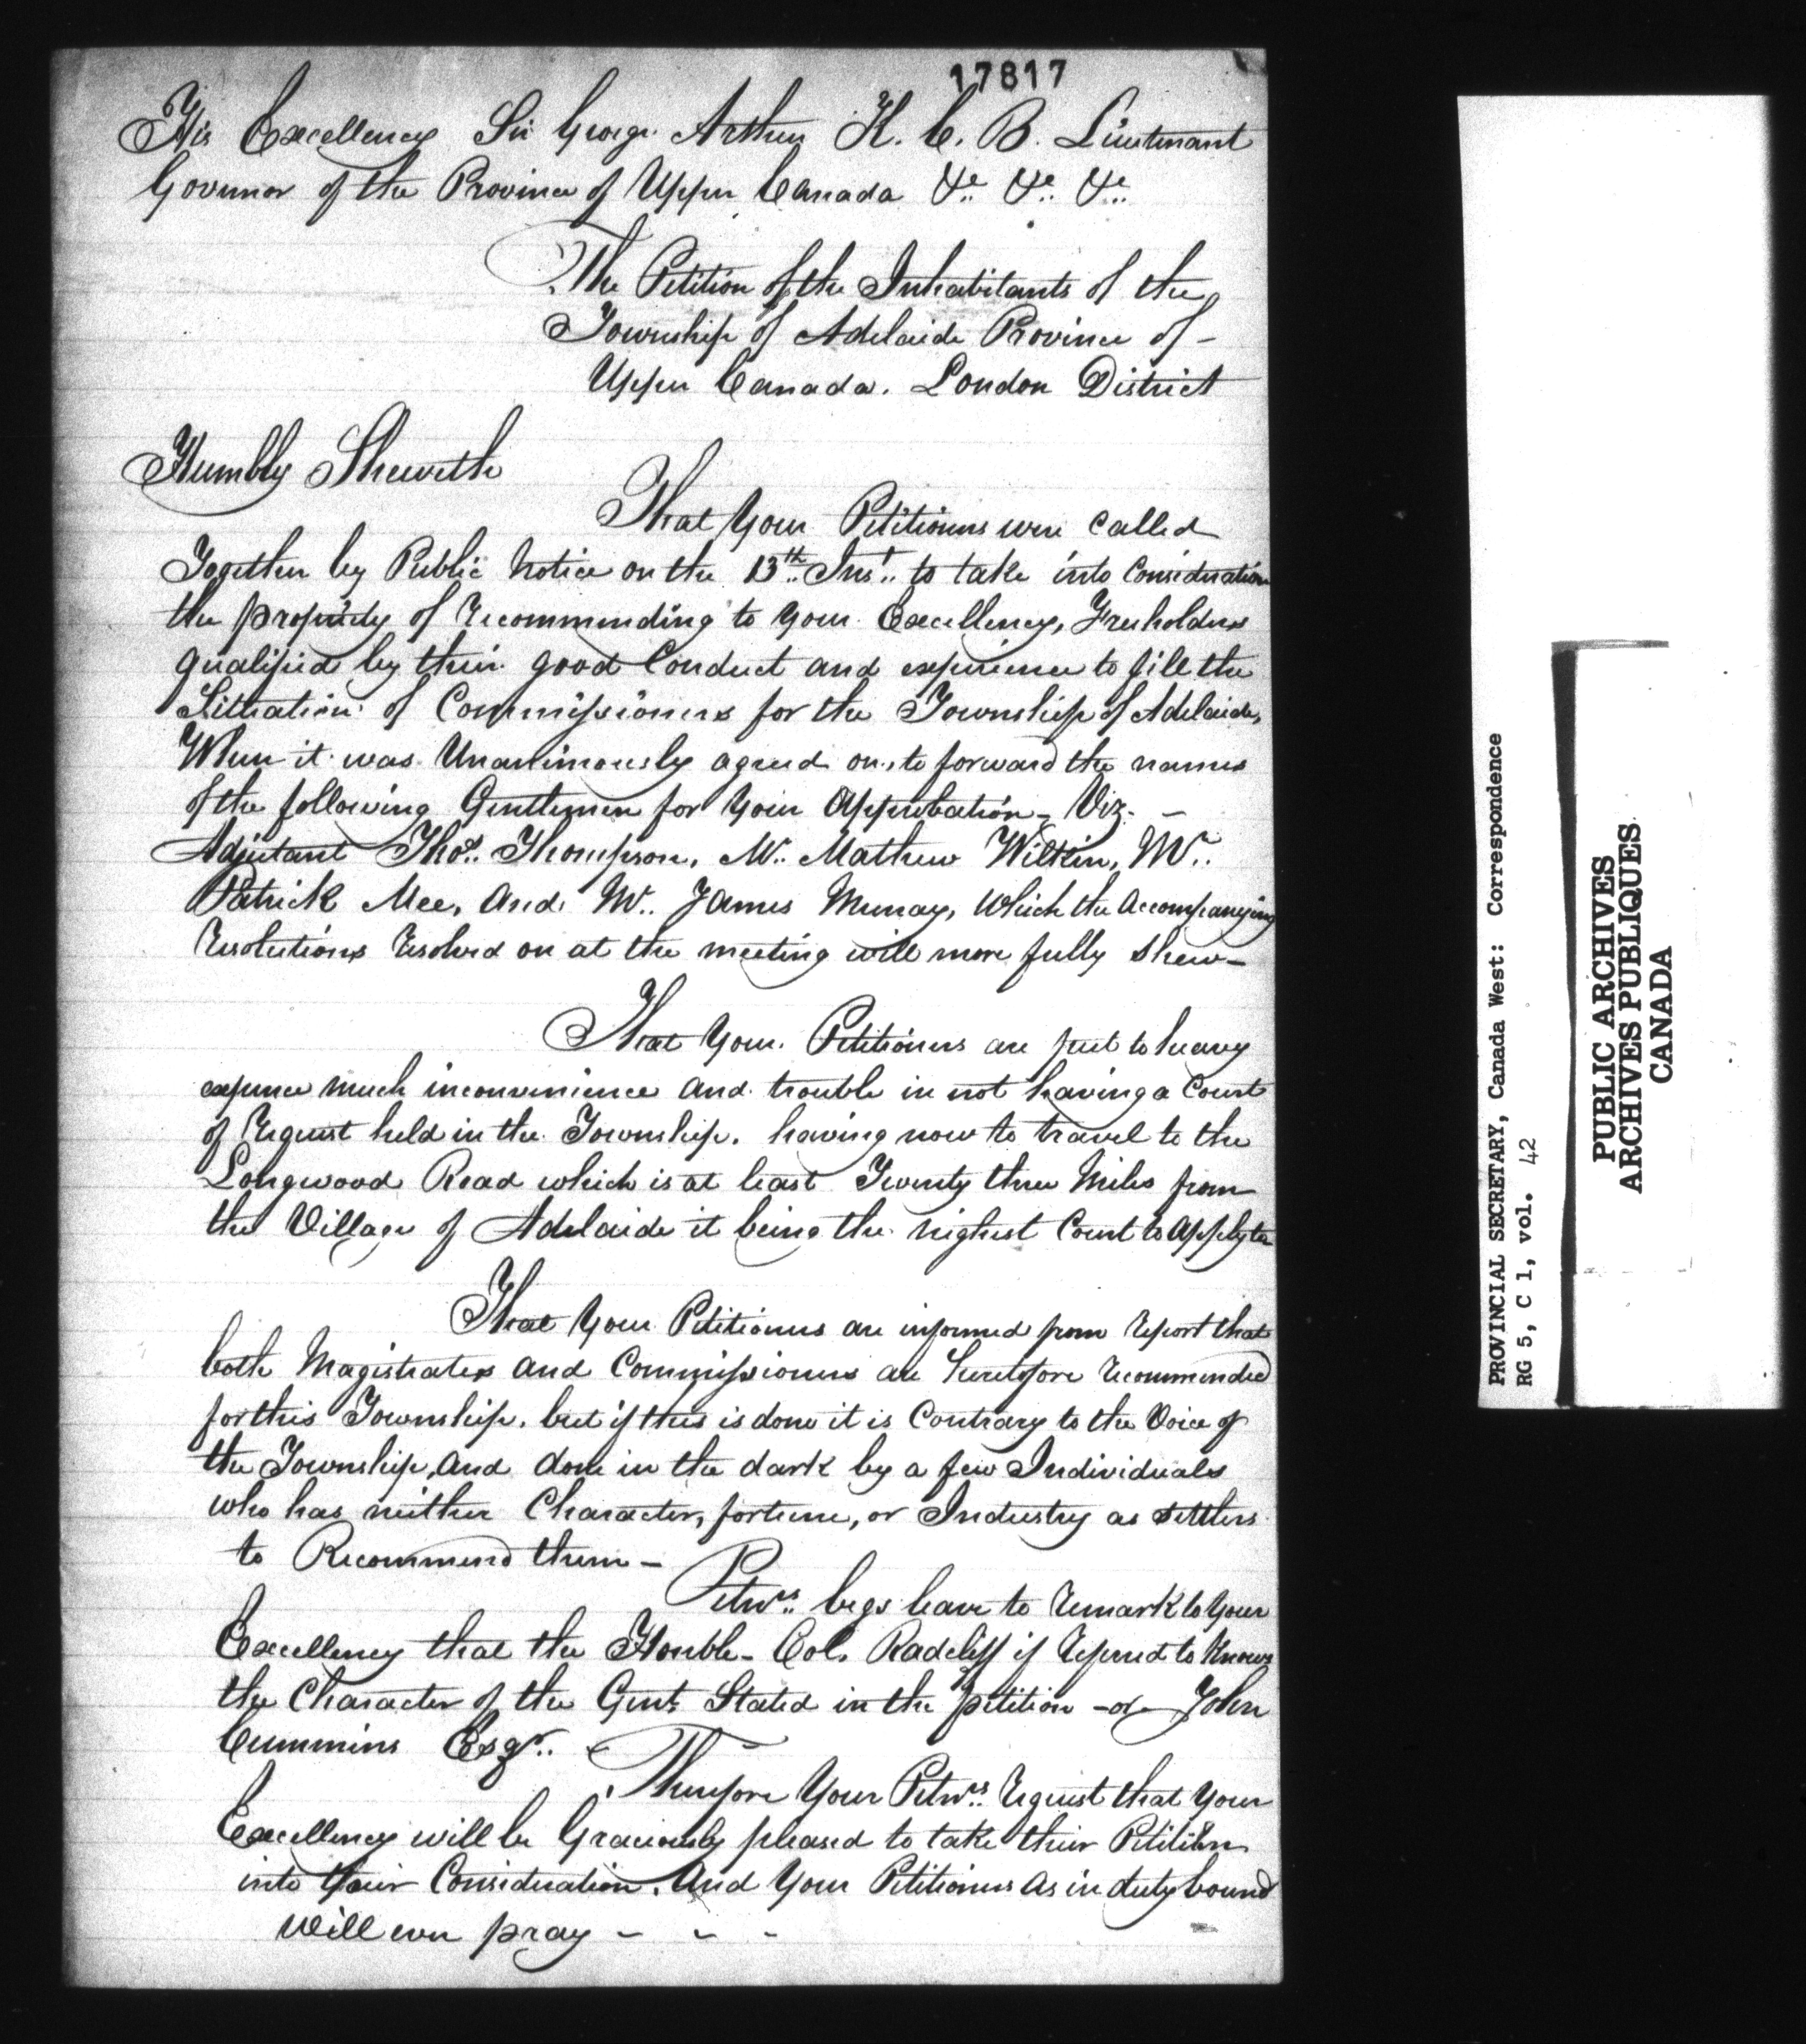 17817
His Excellency Sir George Arthur K. C. B. Lieutenant
Governor of the Province of Upper Canada &c &c &c
The Petition of the Inhabitants of the
Township of Adelaide Province of -
Upper Canada. London District
Humbly Sheweth
That Your Petitioners were called
Together by Public Notice on the 13th Inst. to take into Consideration
the propriety of recommending to Your Excellency, Freeholders
qualified by their good Conduct and experience to fill the
Sittuation of Commissioners for the Township of Adelaide,
When it was Unanimously agreed on, to forward the names
of the following Gentlemen for Your Approbation - Viz. -
Adjutant Thos. Thompson, Mr. Mathew Wilkin, Mr.
Patrick Mee, And Mr. James Murray, Which the Accompanying
Resolutions resolved on at the meeting will more fully shew -
That Your Petitioners are put to heavy
expence much inconvenience and trouble in not having a Court
of Request held in the Township. having now to travel to the
Longwood Road which is at least Twenty three Miles from
the Village of Adelaide it being the nighest Court to Apply to
That Your Petitioners are informed from report that
both Magistrates and Commissioners are heretofore recommended
for this Township. but if this is done it is Contrary to the Voice of
the Township, and done in the dark by a few Individuals
who has neither Character, fortune, or Industry as settlers
to Recommend them -
Petrs. begs leave to remark to Your
Excellency that the Honble. Col. Radcliff if refered to knows
the Character of the Gents Stated in the petition - or - John
Cummins Esqr. -
Therefore Your Petrs. request that Your
Excellency will be Graciously pleased to take their Petition
into Your Consideration. And Your Petitioners as in duty bound
Will ever pray - - -
PROVINCIAL SECRETARY, Canada West: Correspondence
RG 5, C 1, vol. 42
PUBLIC ARCHIVES
ARCHIVES PUBLIQUES
CANADA